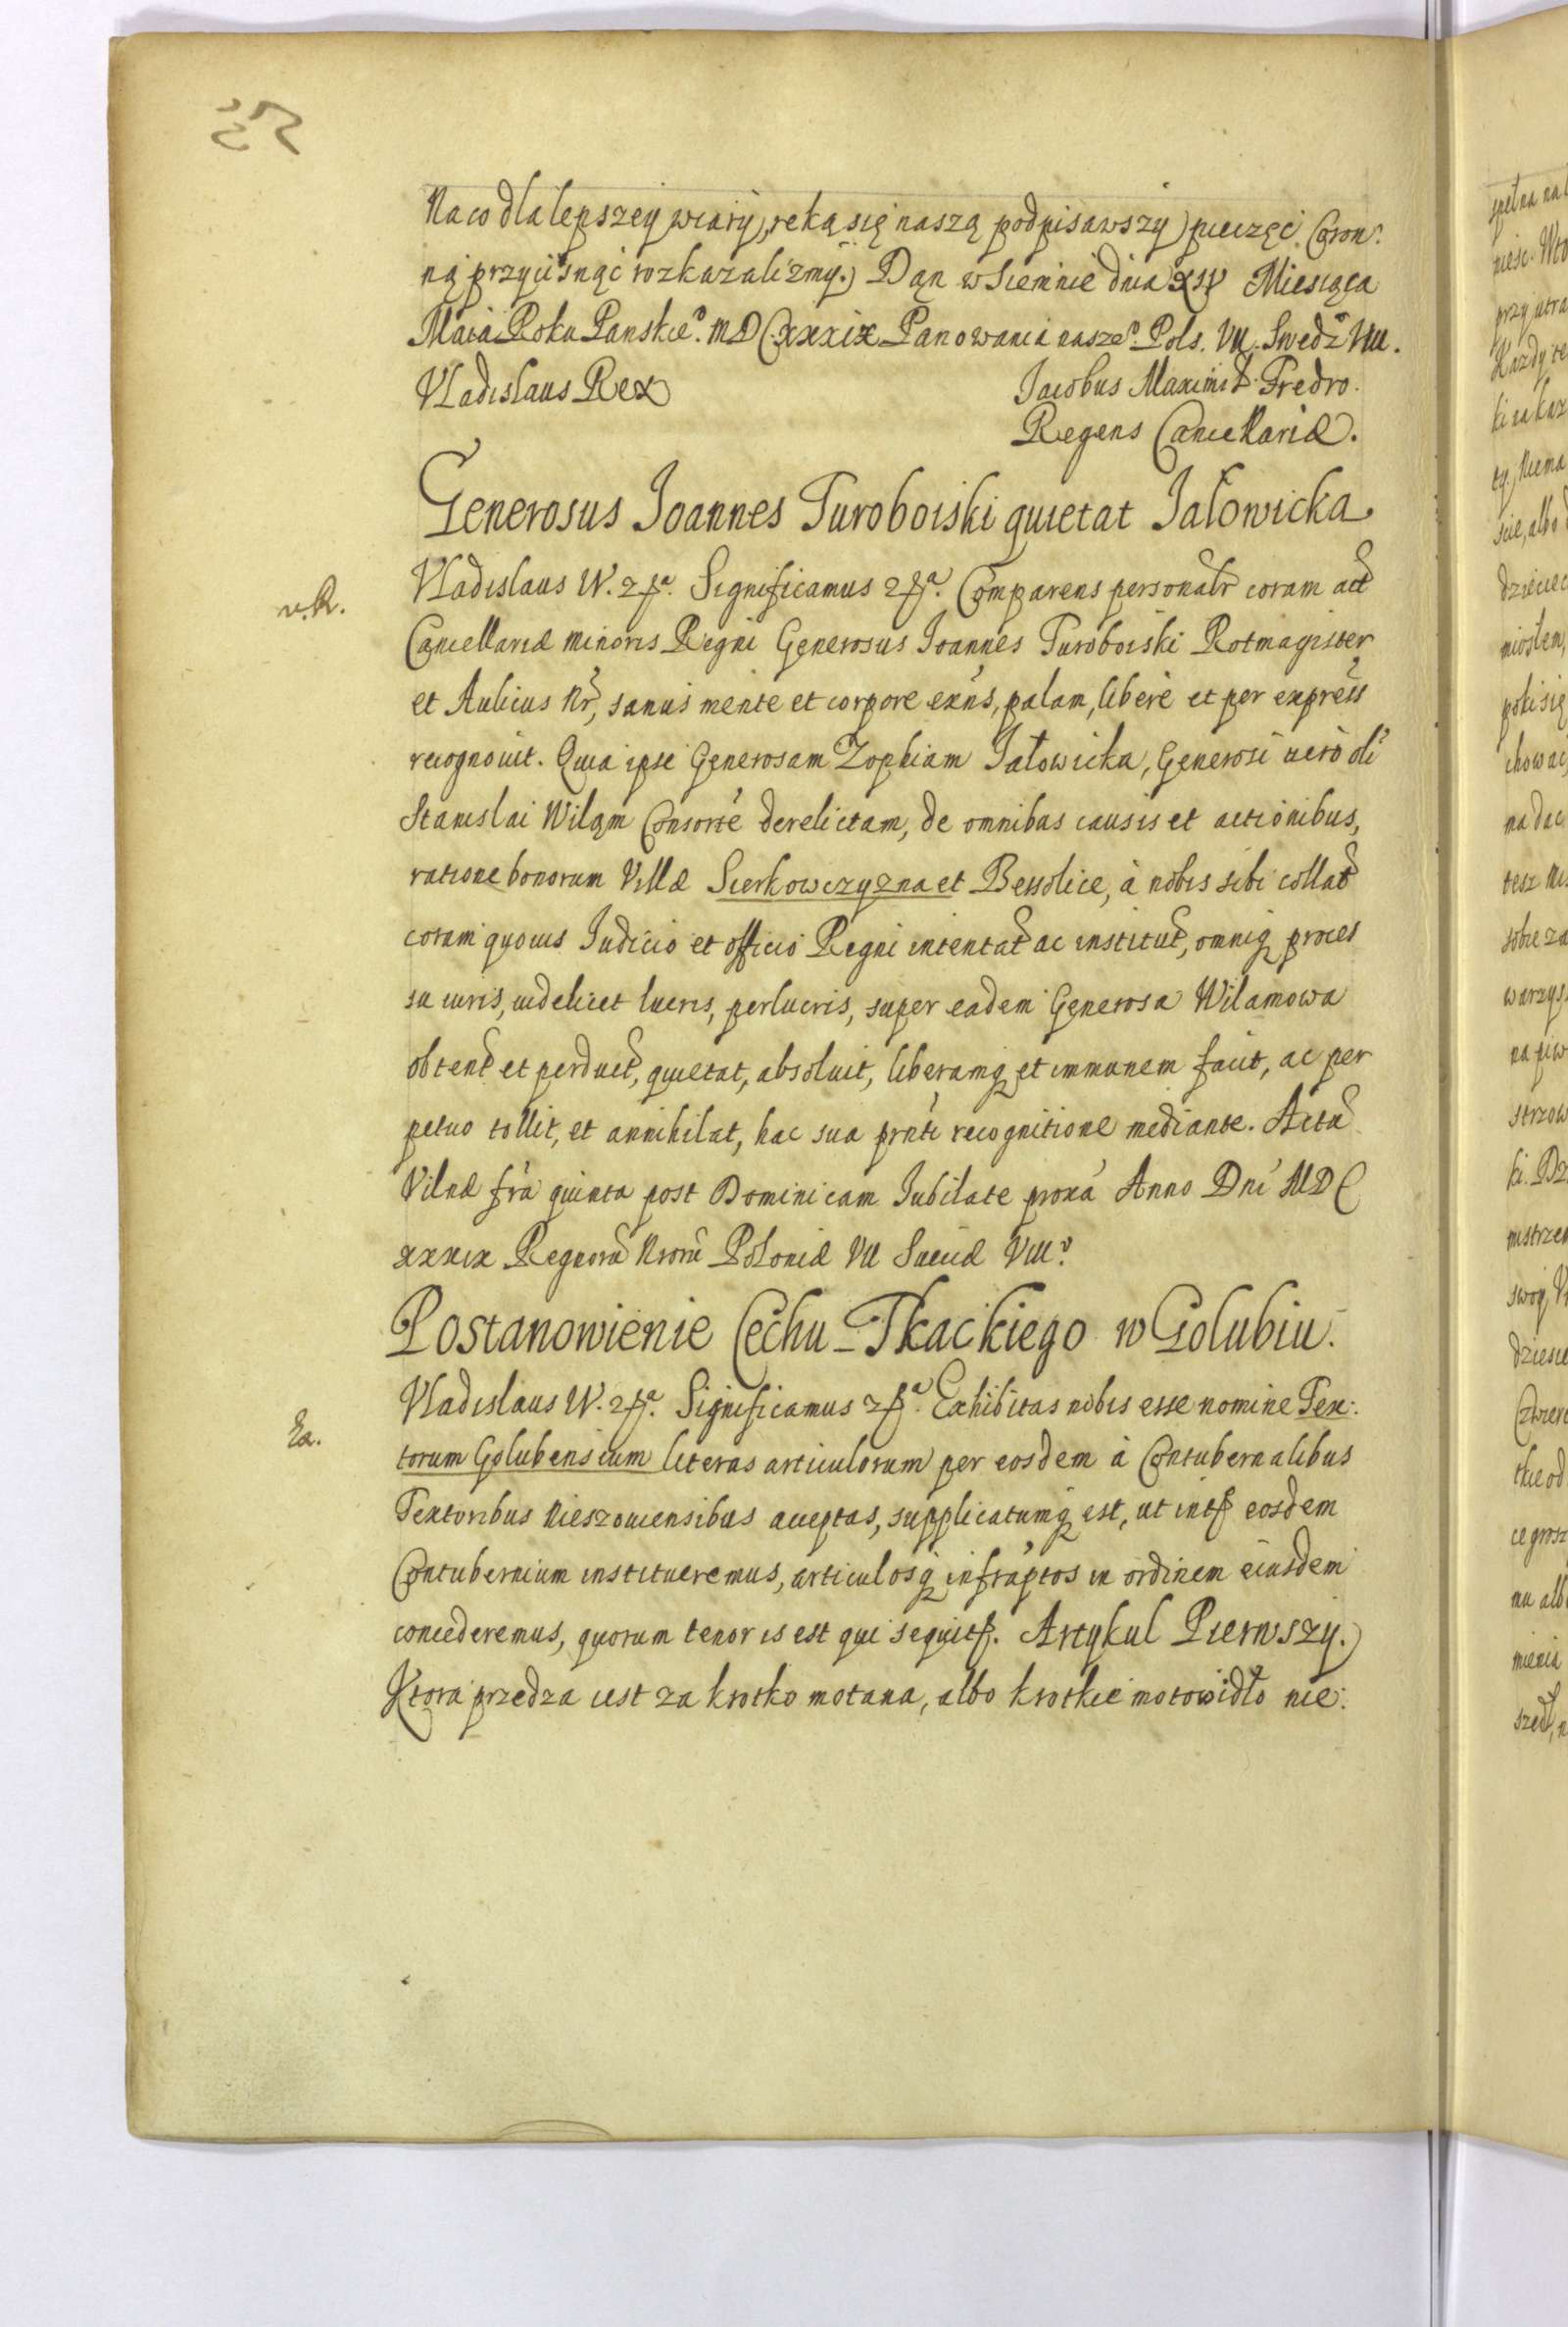 Na co dla lepszey wiary, ręką się naszą podpisawszy, pieczęć Coron:
ną przycisnąć rozkazalizmy. Dan w Siemnie dnia XIV Miesiąca
Maia Roku Panskieº. MDCXXXIX Panowania naszeº. Pols. VII. Swedzº VIII.
Vladislaus Rex
Jacobus Maximil: Fredro.
Regens Cancellariæ.
Generosus Joannes Turoboiski quietat Jałowicka.
v.R.
Vladislaus IV. etc. Significamus etc. Comparens personalr coram act
Cancellariæ minoris Regni Generosus Joannes Turoboiski Rotmagister
et Aulicus Nr, sanus mente et corpore exns, palam, libere et per express
recognouit. Quia ipse Generosam Zophiam Jałowicka, Generosi uero oli
Stanislai Wiląm Consorte derelictam, de omnibus causis et actionibus,
ratione bonorum Villæ Sierkowczyzna et Bessolice, à nobis sibi collat
coram quouis Judicio et officio Regni intentat ac institut, omniq proces
su iuris, uidelicet lucris, perlucris, super eadem Generosa Wilamowa
obtent et perduct, quietat, absoluit, liberamq et immunem facit, ac per
petuo tollit, et annihilat, hac sua prnti recognitione mediante. Acta
Vilnæ fra quinta post Dominicam Jubilate proxa Anno Dni MDC
XXXIX Regnoru Nroru Poloniæ VII Sueciæ VIII.º
Postanowienie Cechu Tkackiego w Golubiu.
Ra.
Vladislaus IV. etc. Significamus etc. Exhibitas nobis esse nomine Tex:
torum Golubensium literas articulorum per eosdem à Contubernalibus
Textoribus Nieszouiensibus acceptas, supplicatumq est, ut intr eosdem
Contubernium institueremus, articulosq infraptos in ordinem eiusdem
concederemus, quorum tenor is est qui sequitr. Artykul Pierwszy.
Ktora przedza iest za krotko motana, albo krotkie motowidło nie: